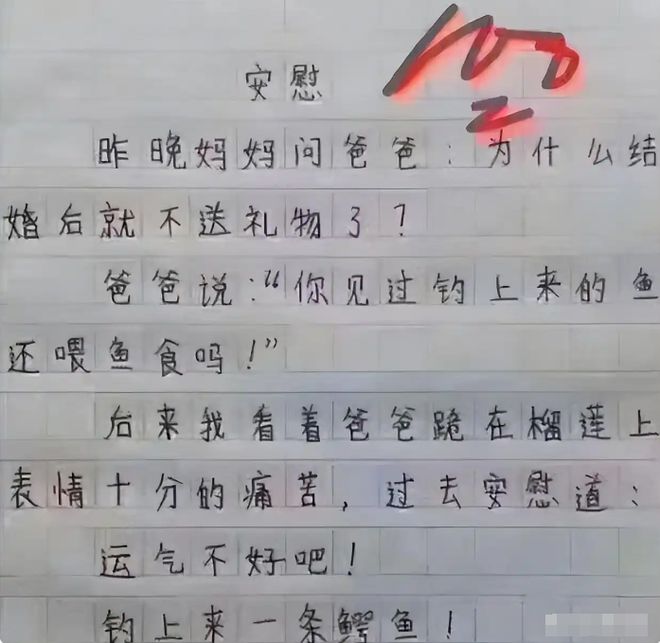 100
安慰
昨晚妈妈问爸爸：为什么结
婚后就不送礼物了？
爸爸说："你见过钓上来的鱼
还喂鱼食吗！"
后来我看着爸爸跪在榴莲上
表情十分的痛苦，过去安慰道：
运气不好吧！
钓上来一条鳄鱼！